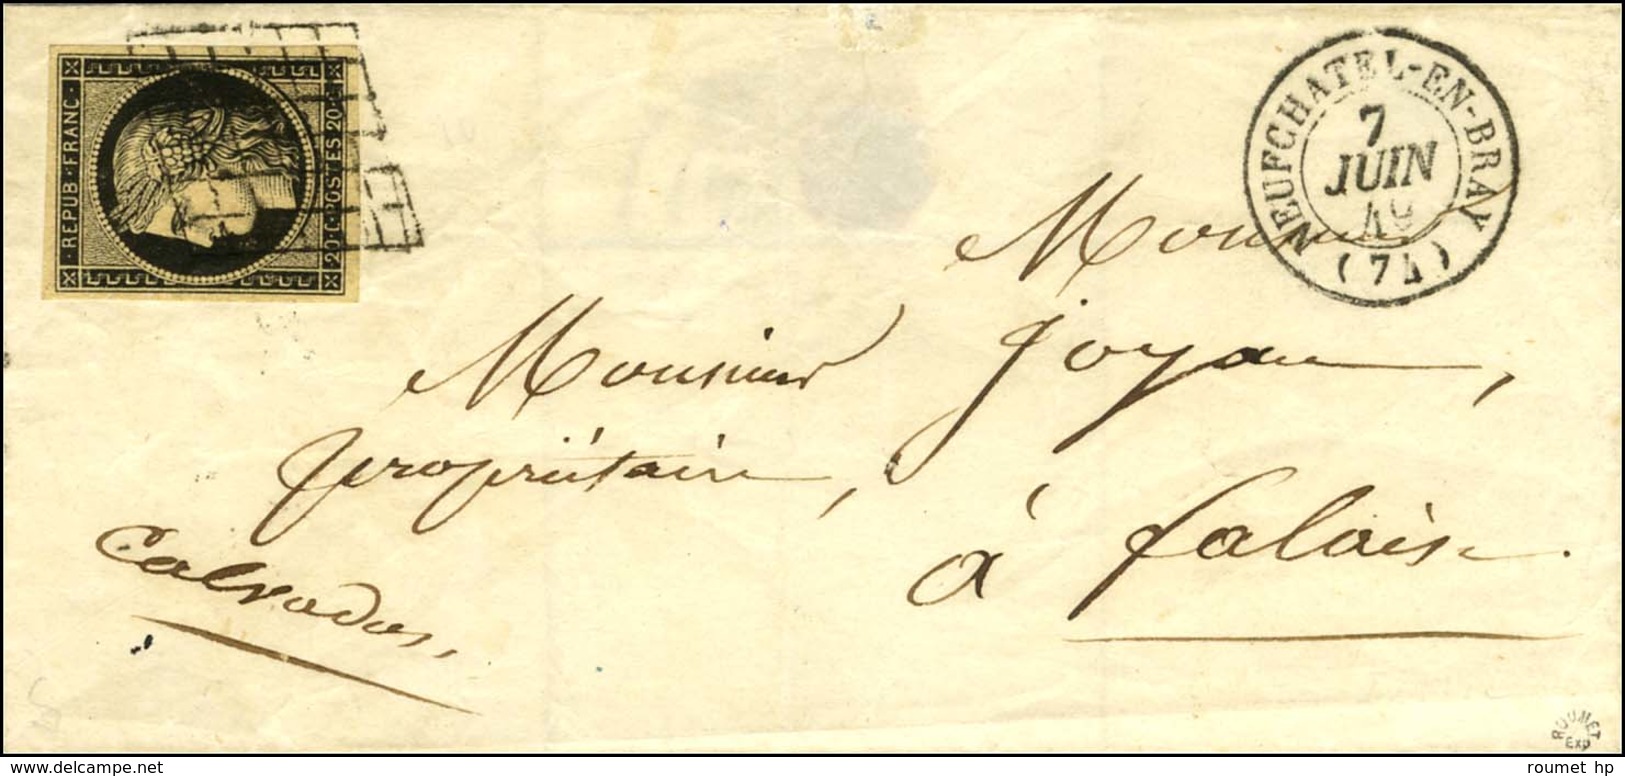 REPUB · FRANC ·
20 · C · POSTES 20 · C
NEUFCHATEL-EN-BRAY
7
JUIN
49
(74)
Monsieur
Monsieur Joyau,
propriétaire,
à Falaise.
Calvados,
ROUMET
Exp
calves.com
roumet hp